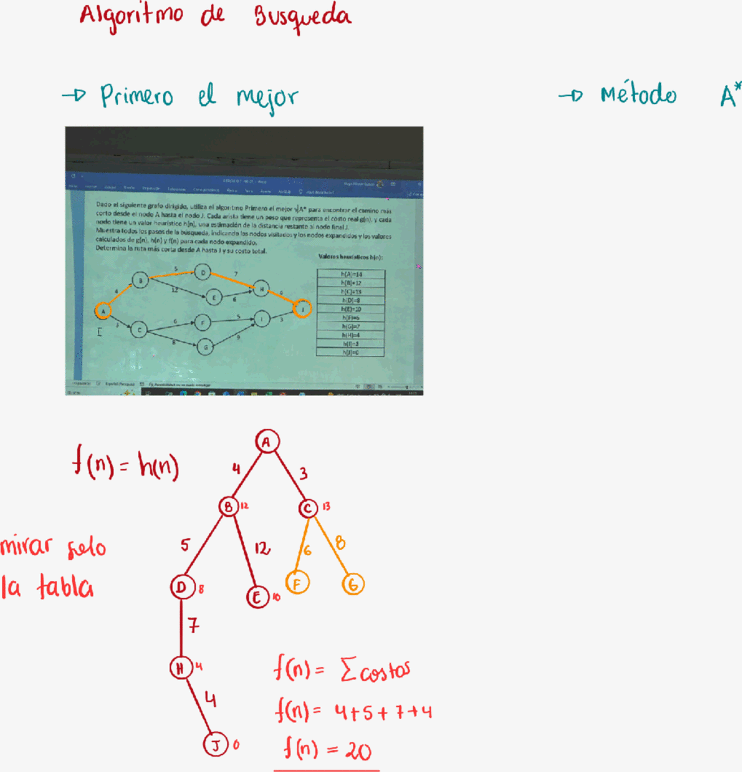 Algoritmo de Busqueda
→ Primero el mejor
→ Método A*
Dado el siguiente grafo dirigido, utiliza el algoritmo Primero el mejor y A* para encontrar el camino más
corto desde el nodo A hasta el nodo J. Cada arista tiene un peso que representa el costo real g(n), y cada
nodo tiene un valor heurístico h(n), una estimación de la distancia restante al nodo final J.
Muestra todos los pasos de la búsqueda, indicando los nodos visitados y los nodos expandidos y los valores
calculados de g(n), h(n) y f(n) para cada nodo expandido.
Determina la ruta más corta desde A hasta J y su costo total.
Valores heurísticos h(n):
h(A)=14
h(B)=12
h(C)=13
h(D)=8
h(E)=10
h(F)=6
h(G)=7
h(H)=4
h(J)=0
A
B
C
D
E
F
G
H
f(n) = h(n)
mirar solo
la tabla
A
4 3
B 12 C 13
5 12 6 8
D 8 E 10 F G
7
H 4
4
J 0
f(n) = Σ costos
f(n) = 4+5+7+4
f(n) = 20